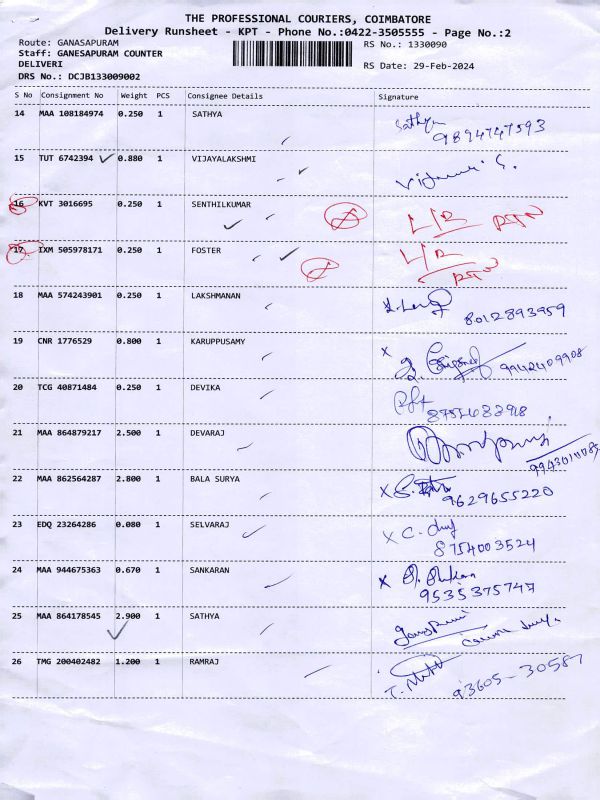 THE PROFESSIONAL COURIERS, COIMBATORE
Delivery Runsheet - KPT - Phone No.:0422-3505555 - Page No.:2
Route: GANASAPURAM RS No.: 1330090
Staff: GANESAPURAM COUNTER
DELIVERI RS Date: 29-Feb-2024
DRS No.: DCJB133009002
S No Consignment No Weight PCS Consignee Details Signature
14 MAA 108184974 0.250 1 SATHYA Sathya
9894747593
15 TUT 6742394 0.880 1 VIJAYALAKSHMI
16 KVT 3016695 0.250 1 SENTHILKUMAR L/R RTN
17 IXM 505978171 0.250 1 FOSTER L/R
RTN
18 MAA 574243901 0.250 1 LAKSHMANAN
8012893959
19 CNR 1776529 0.800 1 KARUPPUSAMY x
9942409908
20 TCG 40871484 0.250 1 DEVIKA
21 MAA 864879217 2.500 1 DEVARAJ
22 MAA 862564287 2.800 1 BALA SURYA x
9629655220
23 EDQ 23264286 0.080 1 SELVARAJ x
8754003524
24 MAA 944675363 0.670 1 SANKARAN x
9535375747
25 MAA 864178545 2.900 1 SATHYA
26 TMG 200402482 1.200 1 RAMRAJ
93605-30587